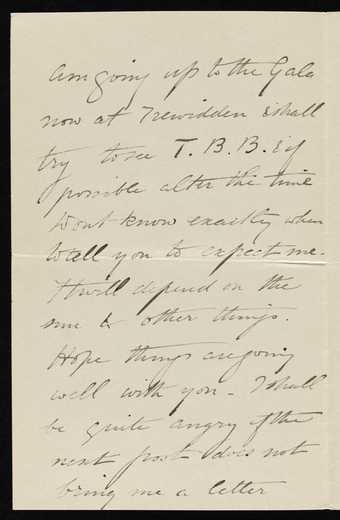 am going up to the Gala
now at Trewidden & shall
try to see T. B. B. & if
possible alter the time
Dont know exactly when
to tell you to expect me.
It will depend on the
sun & other things.
Hope things are going
well with you – I shall
be quite angry if the
next post does not
bring me a letter